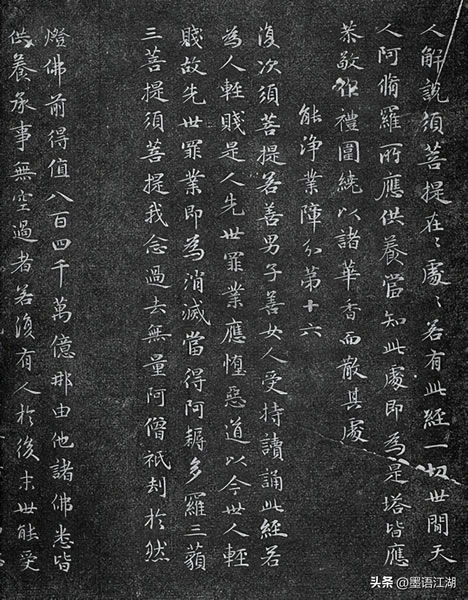 人解說須菩提在〻處〻若有此經一切世間天
人阿脩羅所應供養當知此處即為是塔皆應
恭敬作禮圍繞以諸華香而散其處
能淨業障分第十六
復次須菩提若善男子善女人受持讀誦此經若
為人輕賤是人先世罪業應墮惡道以今世人輕
賤故先世罪業即為消滅當得阿耨多羅三藐
三菩提須菩提我念過去無量阿僧祇刦於然
燈佛前得值八百四千萬億那由他諸佛悉皆
供養承事無空過者若復有人於後末世能受
头条 @墨语江湖